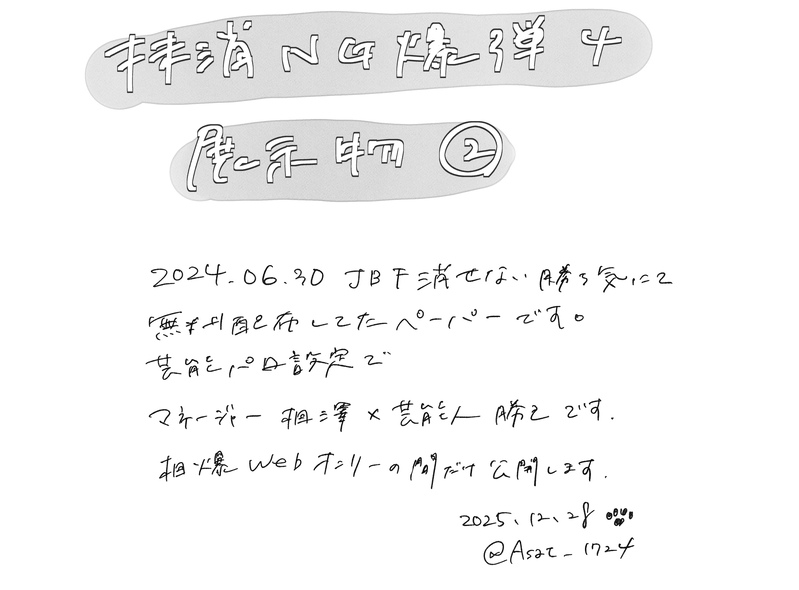 抹消NG爆弾4
展示物②
2024.06.30 JBF消せない勝ち気にて
無料配布してたペーパーです。
芸能パロ設定で
マネージャー相澤×芸能人勝己です.
相爆Webオンリーの間だけ公開します.
2025.12.28
@Asac_1724